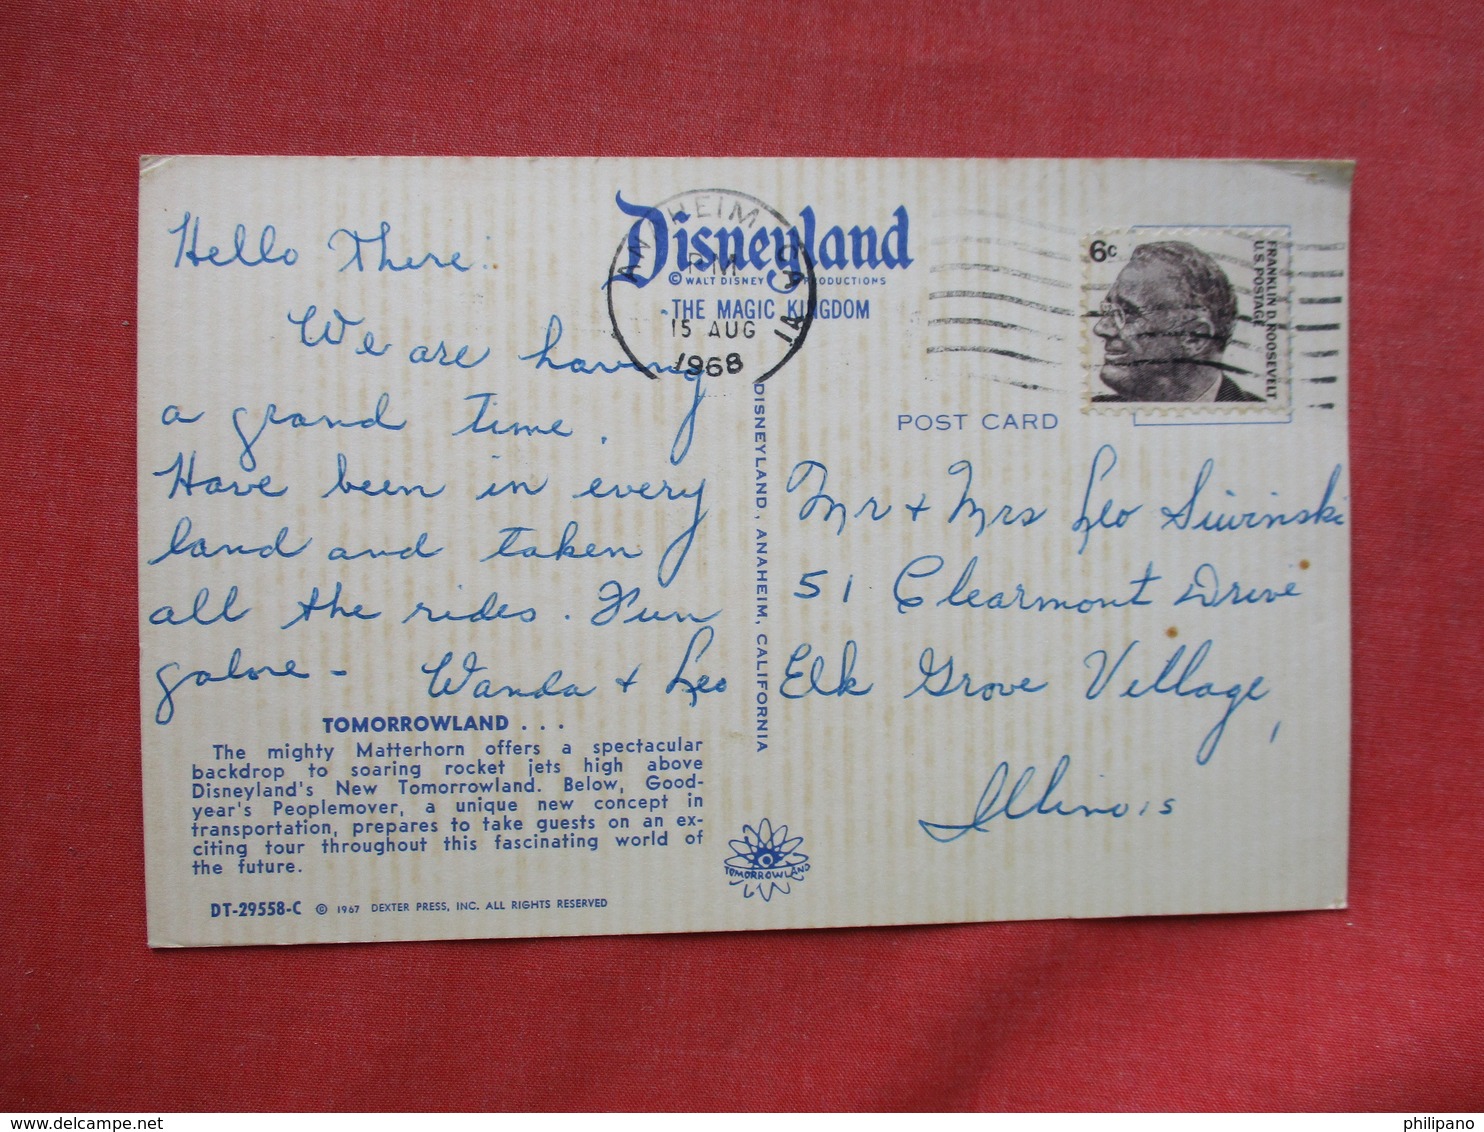 Disneyland
© WALT DISNEY PRODUCTIONS
THE MAGIC KINGDOM
ANAHEIM CA
PM
15 AUG
1968
1A
6c
FRANKLIN D. ROOSEVELT
U.S. POSTAGE
POST CARD
Hello There:
We are having
a grand time.
Have been in every
land and taken
all the rides. Fun
galore - Wanda + Leo
Mr + Mrs Leo Siwinski
51 Clearmont Drive
Elk Grove Village,
Illinois
DISNEYLAND, ANAHEIM, CALIFORNIA
TOMORROWLAND . . .
The mighty Matterhorn offers a spectacular
backdrop to soaring rocket jets high above
Disneyland's New Tomorrowland. Below, Good-
year's Peoplemover, a unique new concept in
transportation, prepares to take guests on an ex-
citing tour throughout this fascinating world of
the future.
TOMORROWLAND
DT-29558-C © 1967 DEXTER PRESS, INC. ALL RIGHTS RESERVED
www.delcampe.net
philipano